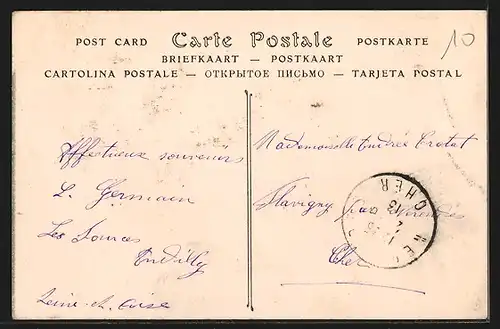 POST CARD Carte Postale POSTKARTE
BRIEFKAART — POSTKAART
CARTOLINA POSTALE — ОТКРЫТОЕ ПИСЬМО — TARJETA POSTAL
10
Affectueux souvenirs
L. Germain
Les Sources
Andilly
Seine-et-Oise
Mademoiselle Andrée Crotat
Flavigny par
Cher
CHER